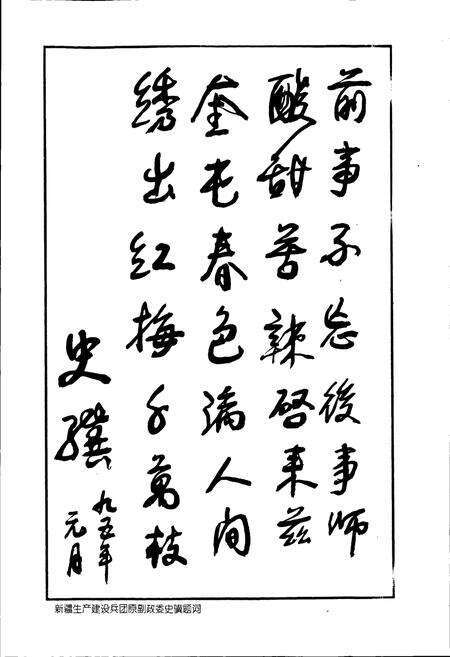 前事不忘後事师
酸甜苦辣啓来兹
奎屯春色满人间
绣出红梅千萬枝
史骥
九五年
元月
新疆生产建设兵团原副政委史骥题词